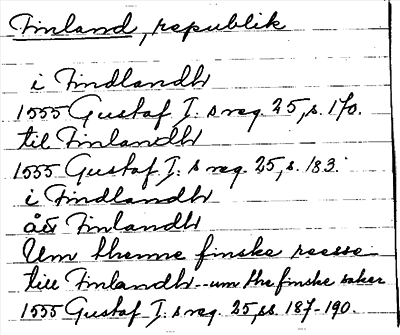 Finland, republik
i Findlandh
1555 Gustaf I:s reg. 25, s. 170.
til Finlandh
1555 Gustaf I:s reg. 25, s. 183.
i Findlandh
åt Finlandh
Um thenne finske reesse
till Finlandh--um the finske saker
1555 Gustaf I:s reg. 25, ss. 187-190.